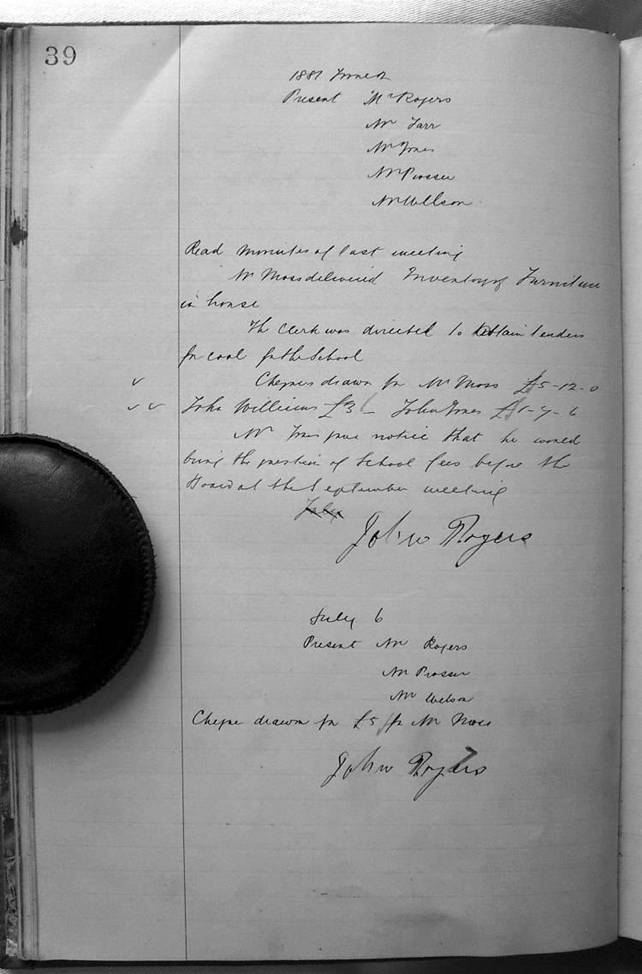 39
1881 June 2
Present Mr Rogers
Mr Farr
Mr Jones
Mr Prosser
Mr Willson
Read minutes of last meeting
Mr Moss delivered Inventory of Furniture
in house
The Clerk was directed to obtain tenders
for coal for the School
Cheques drawn for Mr Moss £5-12-0
John Williams £3/- John Jones £1-7-6
Mr Jones gave notice that he would
bring the question of School fees before the
Board at the September meeting
July
John Rogers
July 6
Present Mr Rogers
Mr Prosser
Mr Welson
Cheque drawn for £5/ for Mr Moss
John Rogers